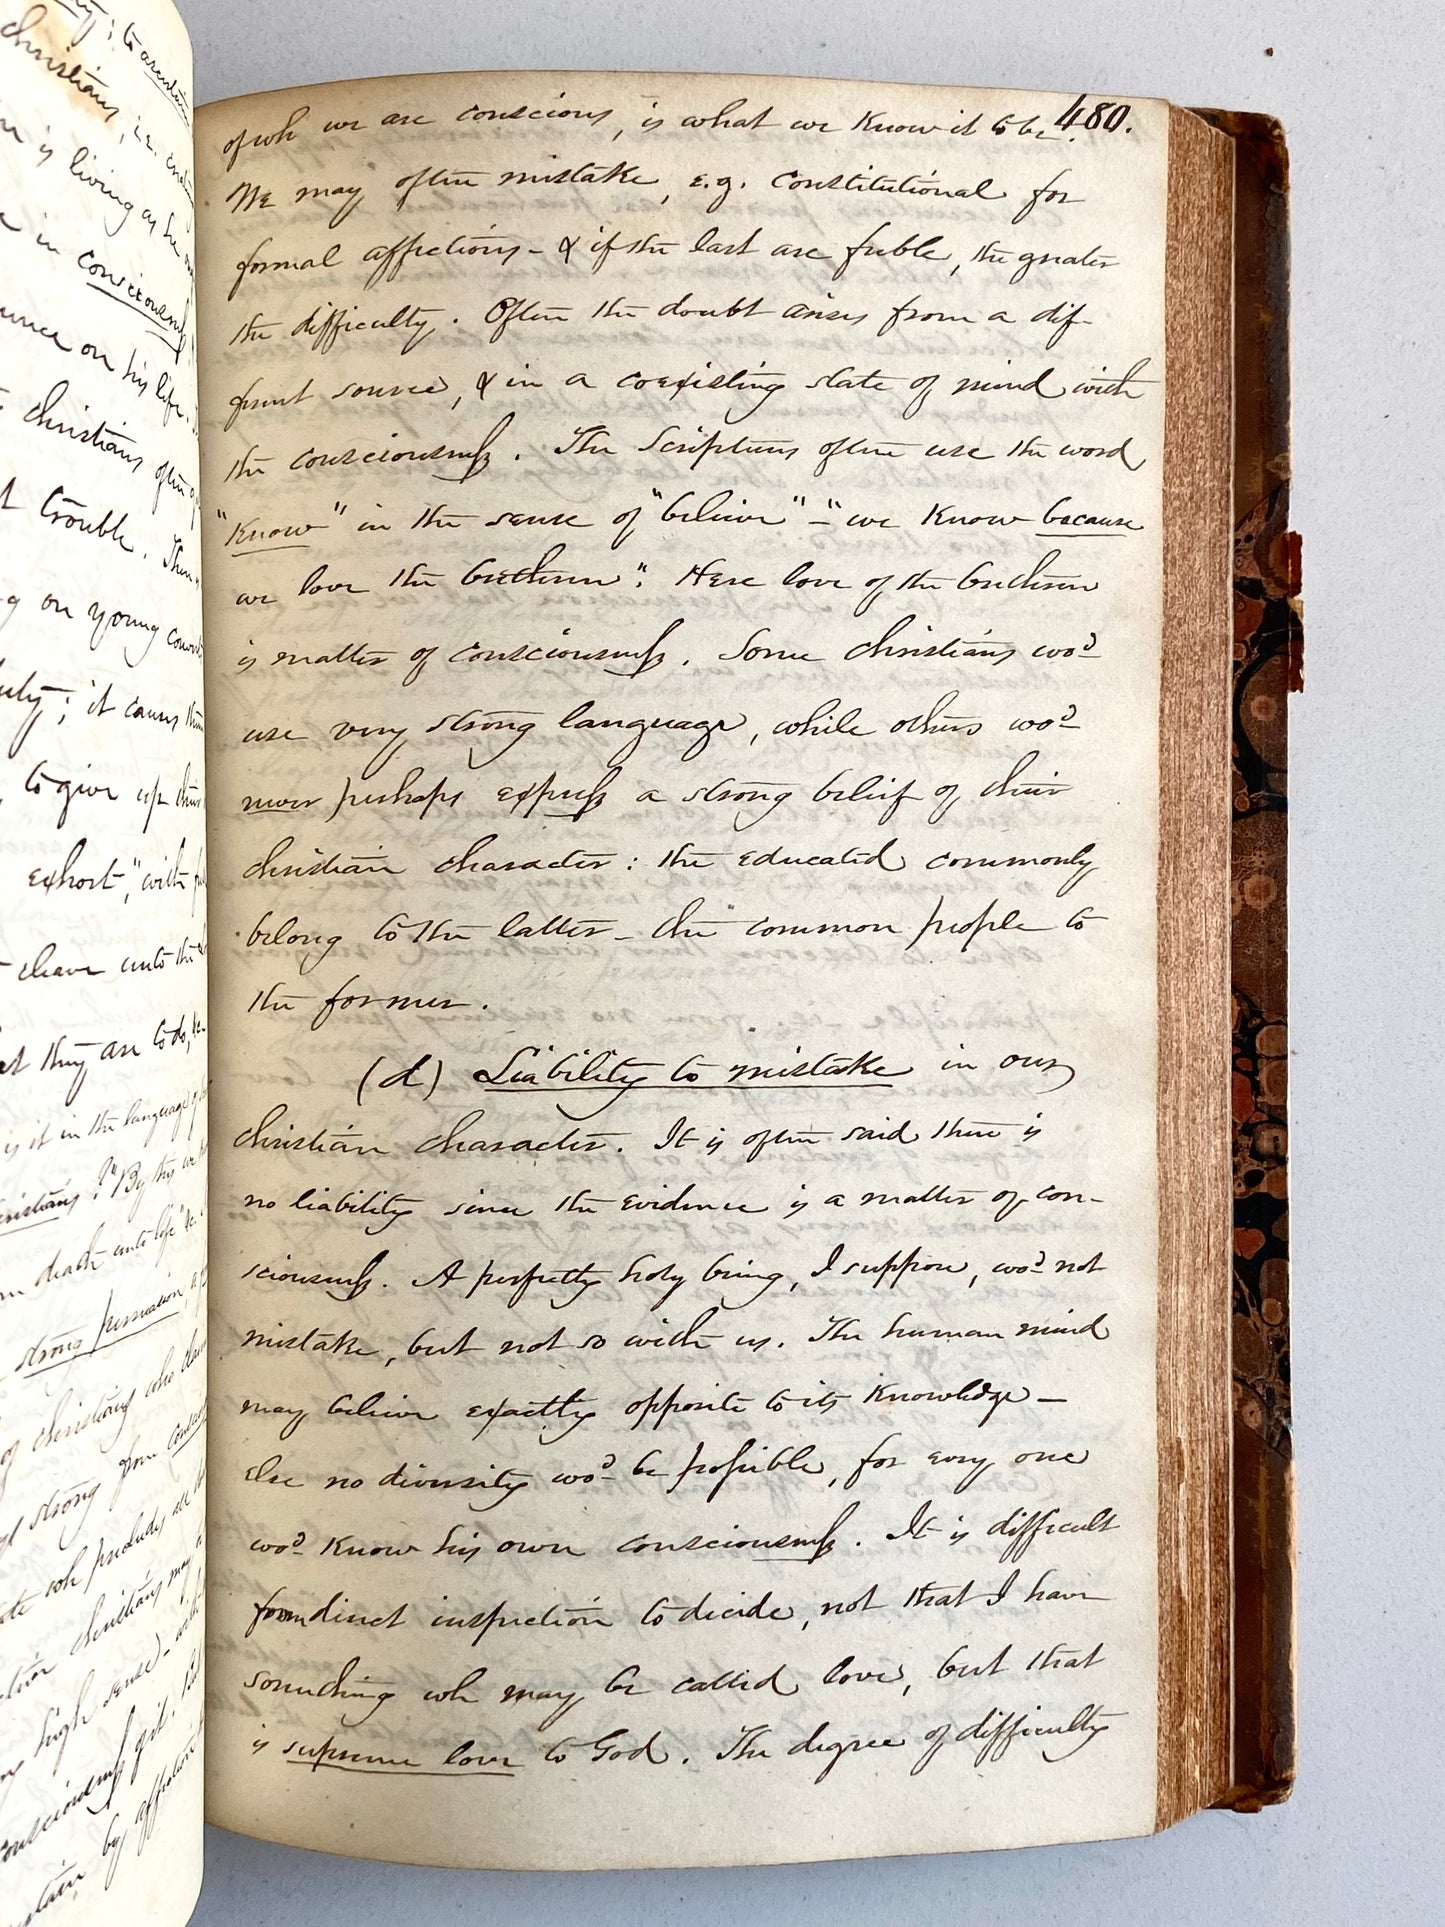 ty; to ascertain
christians, i.e. 
is living as he
in consciousness
on his life.
christians often
trouble. Then
on young
; it causes
to give up
exhort," with
cleave unto the
they are to do, &c.
is it in the language of
christians? "By this we
death unto life" &c.
strong persuasion,
of christians who
strong from
wh precludes all
christians may
high sense - with
consciousness
by affection
480.
of wh we are conscious, is what we know it to be.
We may often mistake, e.g. constitutional for
formal affections - & if the last are feeble, the greater
the difficulty. Often the doubt arises from a dif-
ferent source, & in a coexisting state of mind with
the consciousness. The Scriptures often use the word
"know" in the sense of "believe" - "we know because
we love the brethren". Here love of the brethren
is matter of consciousness. Some christians wod
use very strong language, while others wod
never perhaps express a strong belief of their
christian character: the educated commonly
belong to the latter - the common people to
the former.
(d) Liability to mistake in our
christian character. It is often said there is
no liability since the evidence is a matter of con-
sciousness. A perfectly holy being, I suppose, wod not
mistake, but not so with us. The human mind
may believe exactly opposite to its knowledge -
else no diversity wod be possible, for every one
wod know his own consciousness. It is difficult
from direct inspection to decide, not that I have
something wh may be called love, but that
is supreme love to God. The degree of difficulty